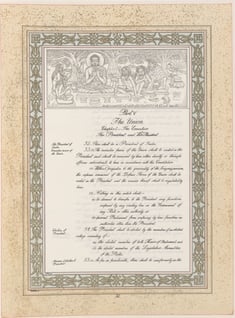 Part V
The Union
Chapter I.—The Executive
The President and Vice-President
The President of
India.
52. There shall be a President of India.
Executive power of
the Union.
53. (1) The executive power of the Union shall be vested in the
President and shall be exercised by him either directly or through
officers subordinate to him in accordance with this Constitution.
(2) Without prejudice to the generality of the foregoing provision,
the supreme command of the Defence Forces of the Union shall be
vested in the President and the exercise thereof shall be regulated by
law.
(3) Nothing in this article shall—
(a) be deemed to transfer to the President any functions
conferred by any existing law on the Government of
any State or other authority; or
(b) prevent Parliament from conferring by law functions on
authorities other than the President.
Election of
President.
54. The President shall be elected by the members of an electoral
college consisting of—
(a) the elected members of both Houses of Parliament; and
(b) the elected members of the Legislative Assemblies
of the States.
55. (1) As far as practicable, there shall be uniformity in the